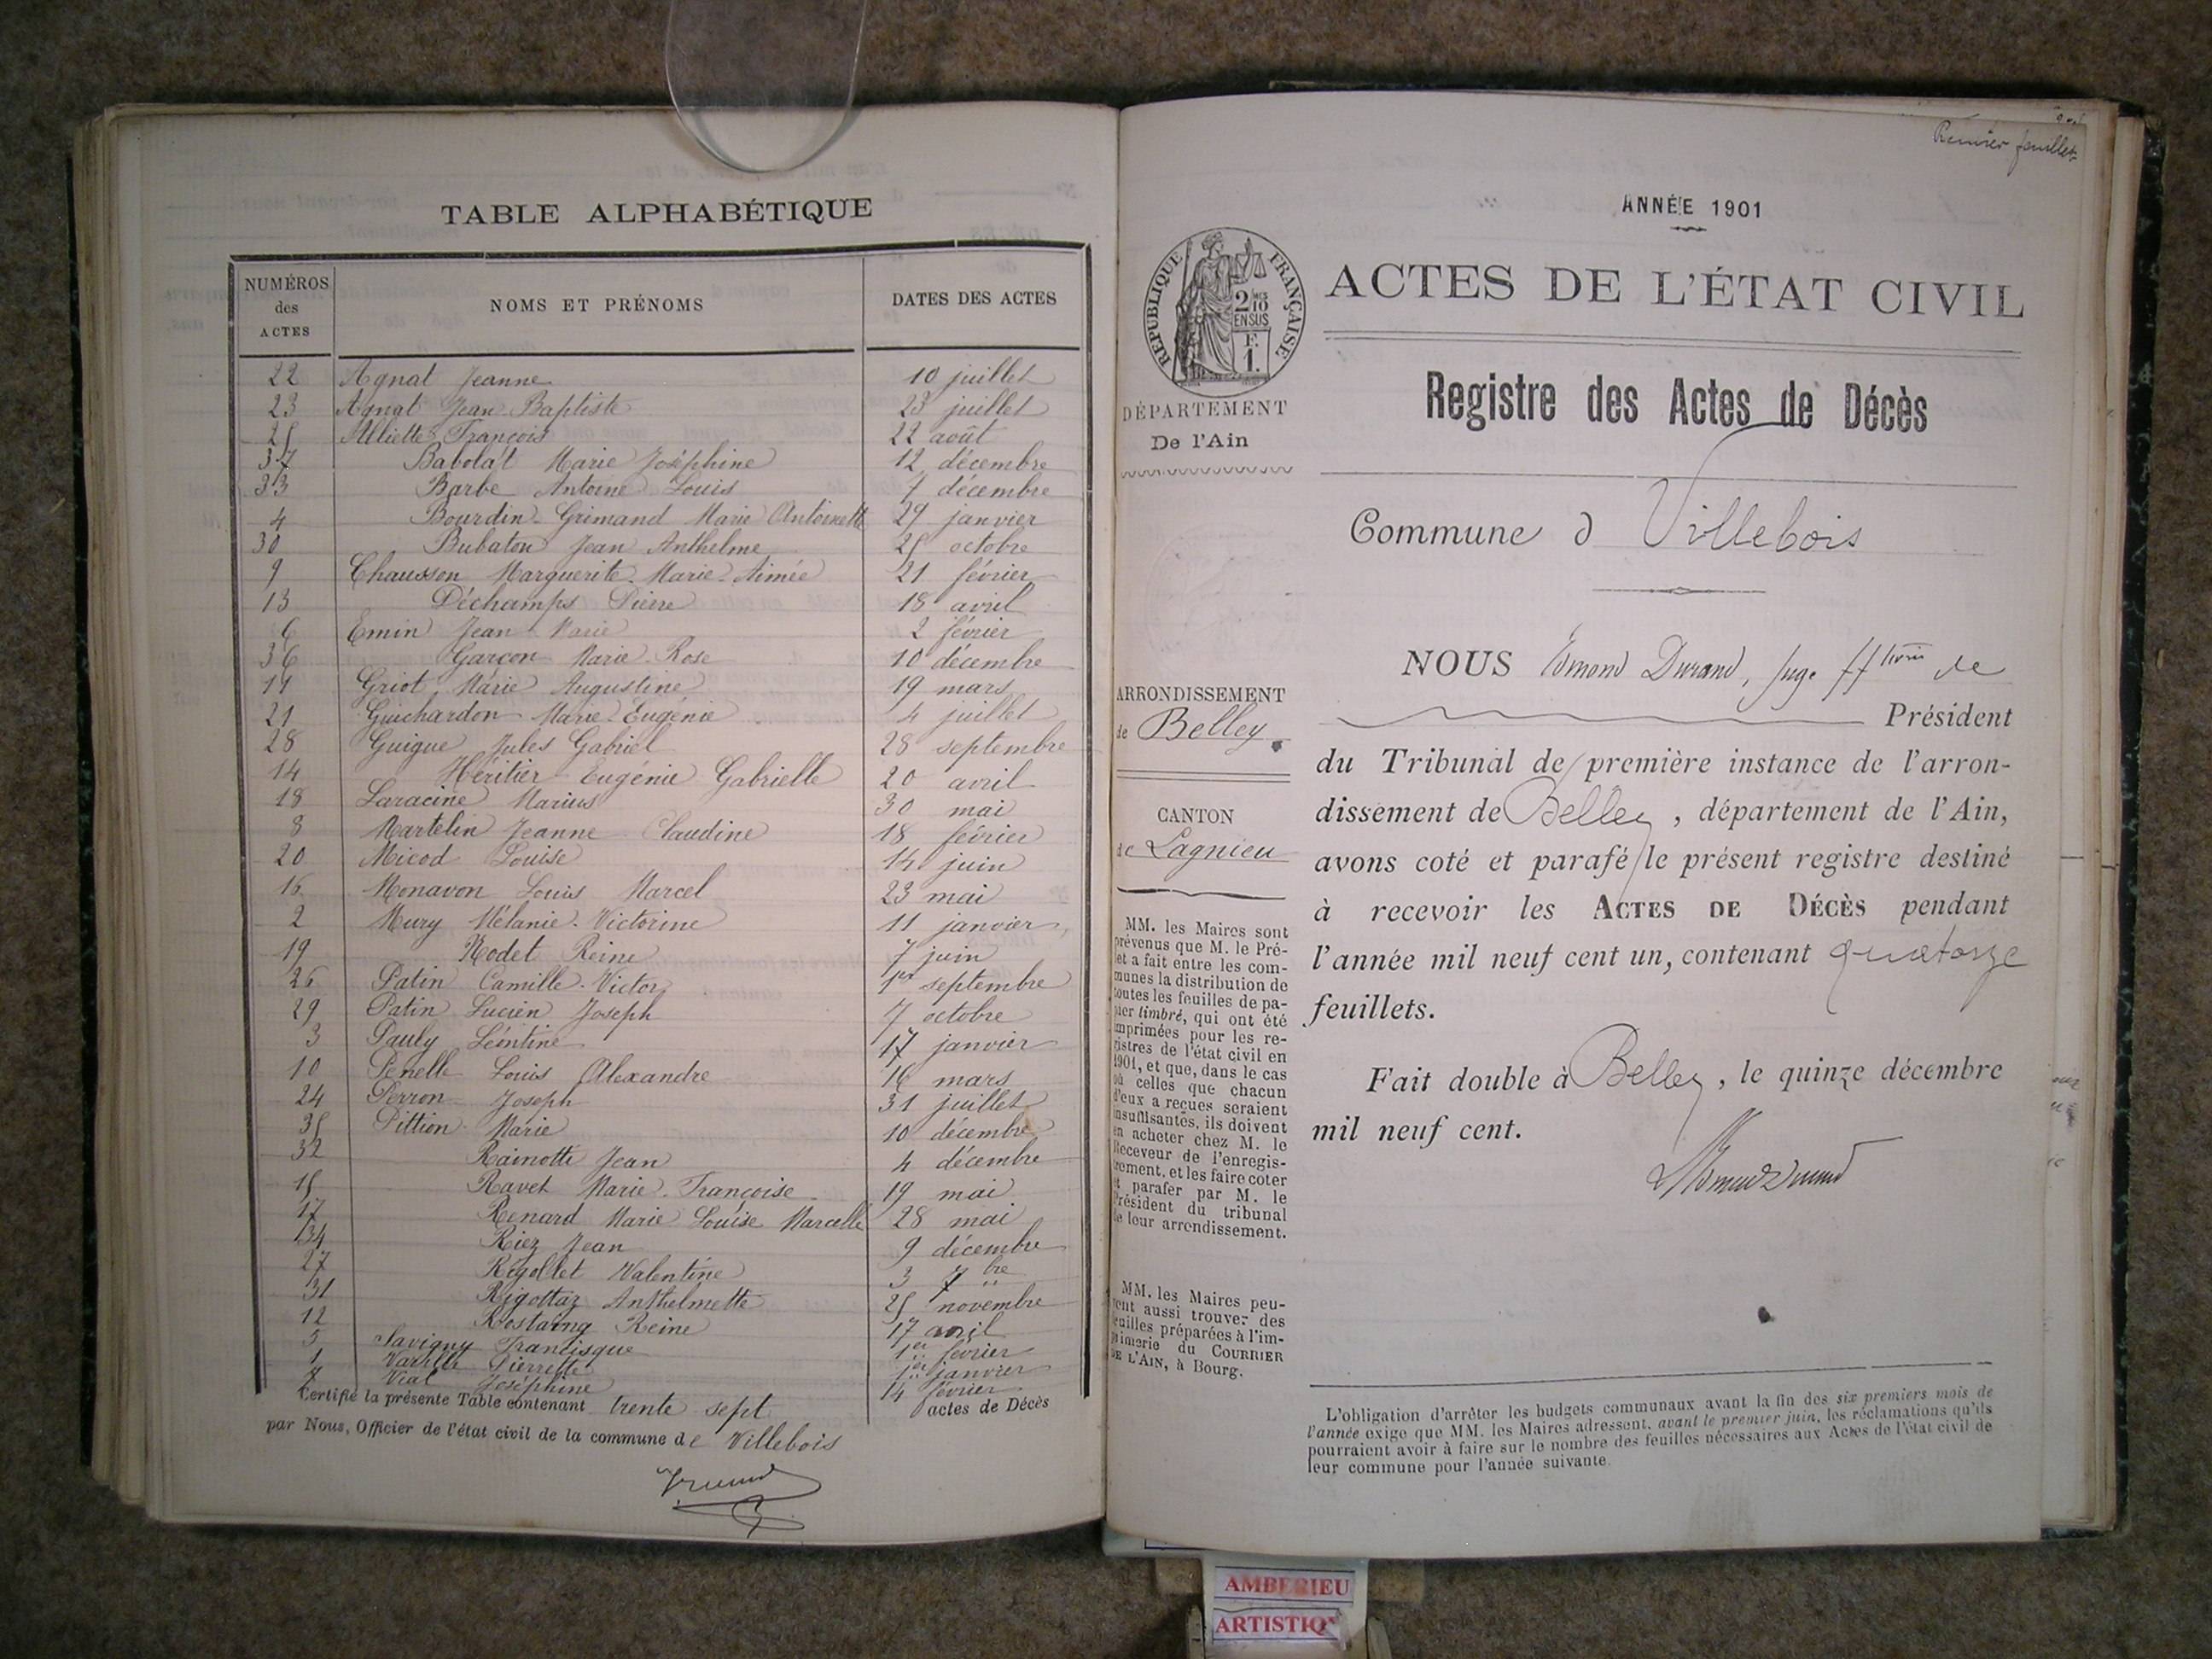 TABLE ALPHABÉTIQUE
NUMÉROS des ACTES NOMS ET PRÉNOMS DATES DES ACTES
22 Agnat Jeanne 10 juillet
23 Agnat Jean Baptiste 23 juillet
25 François 22 août
37 Babolat Marie Joséphine 12 décembre
33 Barbe Antoine Louis 7 décembre
4 Bourdin-Grimand Marie Antoinette 29 janvier
30 Bubaton Jean Anthelme 25 octobre
9 Chausson Marguerite Marie-Aimée 21 février
13 Déchamps Pierre 18 avril
6 Emin Jean Marie 2 février
36 Garçon Marie-Rose 10 décembre
11 Griot Marie Augustine 19 mars
21 Guichardon Marie-Eugénie 4 juillet
28 Guigue Jules Gabriel 28 septembre
14 Héritier Eugénie Gabrielle 20 avril
18 Laracine Marius 30 mai
8 Martelin Jeanne Claudine 18 février
20 Micod Louise 14 juin
16 Monavon Louis Marcel 23 mai
2 Mury Mélanie-Victorine 11 janvier
19 Rodet Reine 7 juin
26 Patin Camille-Victor 1er septembre
29 Patin Lucien Joseph 7 octobre
3 Pauly Léontine 17 janvier
10 Penelle Louis Alexandre 16 mars
24 Perron Joseph 31 juillet
35 Pittion Marie 10 décembre
32 Rainotti Jean 4 décembre
15 Ravet Marie-Françoise 19 mai
17 Renard Marie Louise Marcelle 28 mai
34 Riez Jean 9 décembre
27 Rigollet Valentine 3 7bre
31 Rigottaz Anthelmette 25 novembre
12 Rostaing Reine 17 avril
5 Savigny Francisque 1er février
1 Varille Pierrette 1er janvier
7 Vial Joséphine 14 février
Certifié la présente Table contenant trente sept actes de Décès
par Nous, Officier de l'état civil de la commune de Villebois
Premier feuillet
ANNÉE 1901
RÉPUBLIQUE FRANÇAISE
2 MES 10
EN SUS
F.
1.
ACTES DE L'ÉTAT CIVIL
DÉPARTEMENT
De l'Ain
Registre des Actes de Décès
Commune d Villebois
ARRONDISSEMENT
de Belley
CANTON
de Lagnieu
MM. les Maires sont
prévenus que M. le Pré-
fet a fait entre les com-
munes la distribution de
toutes les feuilles de pa-
pier timbré, qui ont été
imprimées pour les re-
gistres de l'état civil en
1901, et que, dans le cas
où celles que chacun
d'eux a reçues seraient
insuffisantes, ils doivent
en acheter chez M. le
Receveur de l'enregis-
trement, et les faire coter
et parafer par M. le
Président du tribunal
de leur arrondissement.
MM. les Maires peu-
vent aussi trouver des
feuilles préparées à l'im-
primerie du COURRIER
DE L'AIN, à Bourg.
NOUS Edmond Durand, Juge ff de
Président
du Tribunal de première instance de l'arron-
dissement de Belley, département de l'Ain,
avons coté et parafé le présent registre destiné
à recevoir les ACTES DE DÉCÈS pendant
l'année mil neuf cent un, contenant quatorze
feuillets.
Fait double à Belley, le quinze décembre
mil neuf cent.
L'obligation d'arrêter les budgets communaux avant la fin des six premiers mois de
l'année exige que MM. les Maires adressent, avant le premier juin, les réclamations qu'ils
pourraient avoir à faire sur le nombre des feuilles nécessaires aux Actes de l'état civil de
leur commune pour l'année suivante.
AMBERIEU
ARTISTIQ